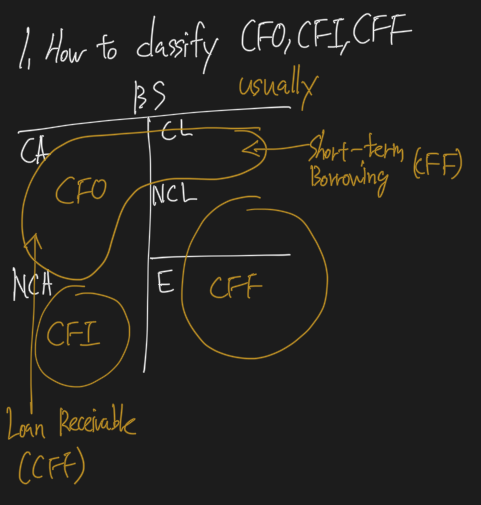 1. How to classify CFO, CFI, CFF
BS
usually
CA
CL
CFO
Short-term
Borrowing (CFF)
NCL
NCA
E
CFF
CFI
Loan Receivable
(CFF)